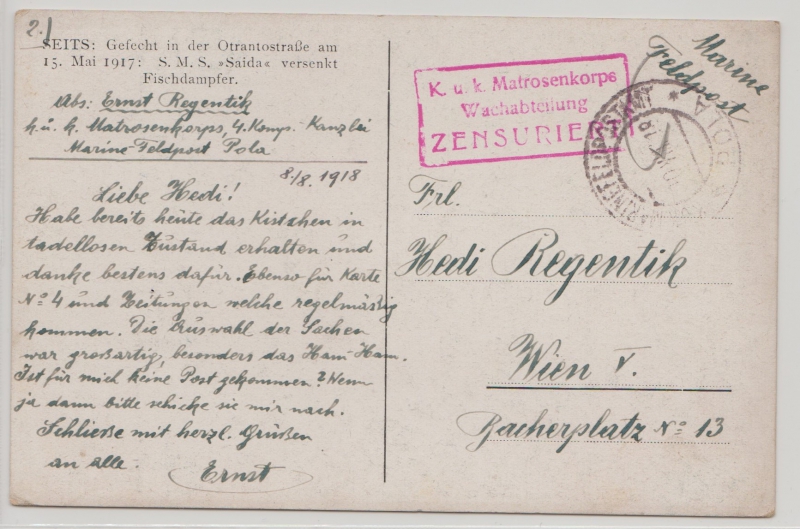 2.)
SEITS: Gefecht in der Otrantostraße am
15. Mai 1917: S. M. S. »Saida« versenkt
Fischdampfer.
Abs: Ernst Regentik
k. u. k. Matrosenkorps, 4. Komp. - Kanzlei
Marine-Feldpost Pola
8./8. 1918
Liebe Hedi!
Habe bereits heute das Kistchen in
tadellosen Zustand erhalten und
danke bestens dafür. Ebenso für Karte
No 4 und Zeitungen welche regelmäßig
kommen. Die Auswahl der Sachen
war großartig, besonders das Ham-Ham.
Ist für mich keine Post gekommen? Wenn
ja dann bitte schicke sie mir nach.
Schließe mit herzl. Grüßen
an alle.
Ernst
K. u. k. Matrosenkorps
Wachabteilung
ZENSURIERT
Marine
Feldpost
POLA
Frl.
Hedi Regentik
Wien V.
Bacherplatz No 13